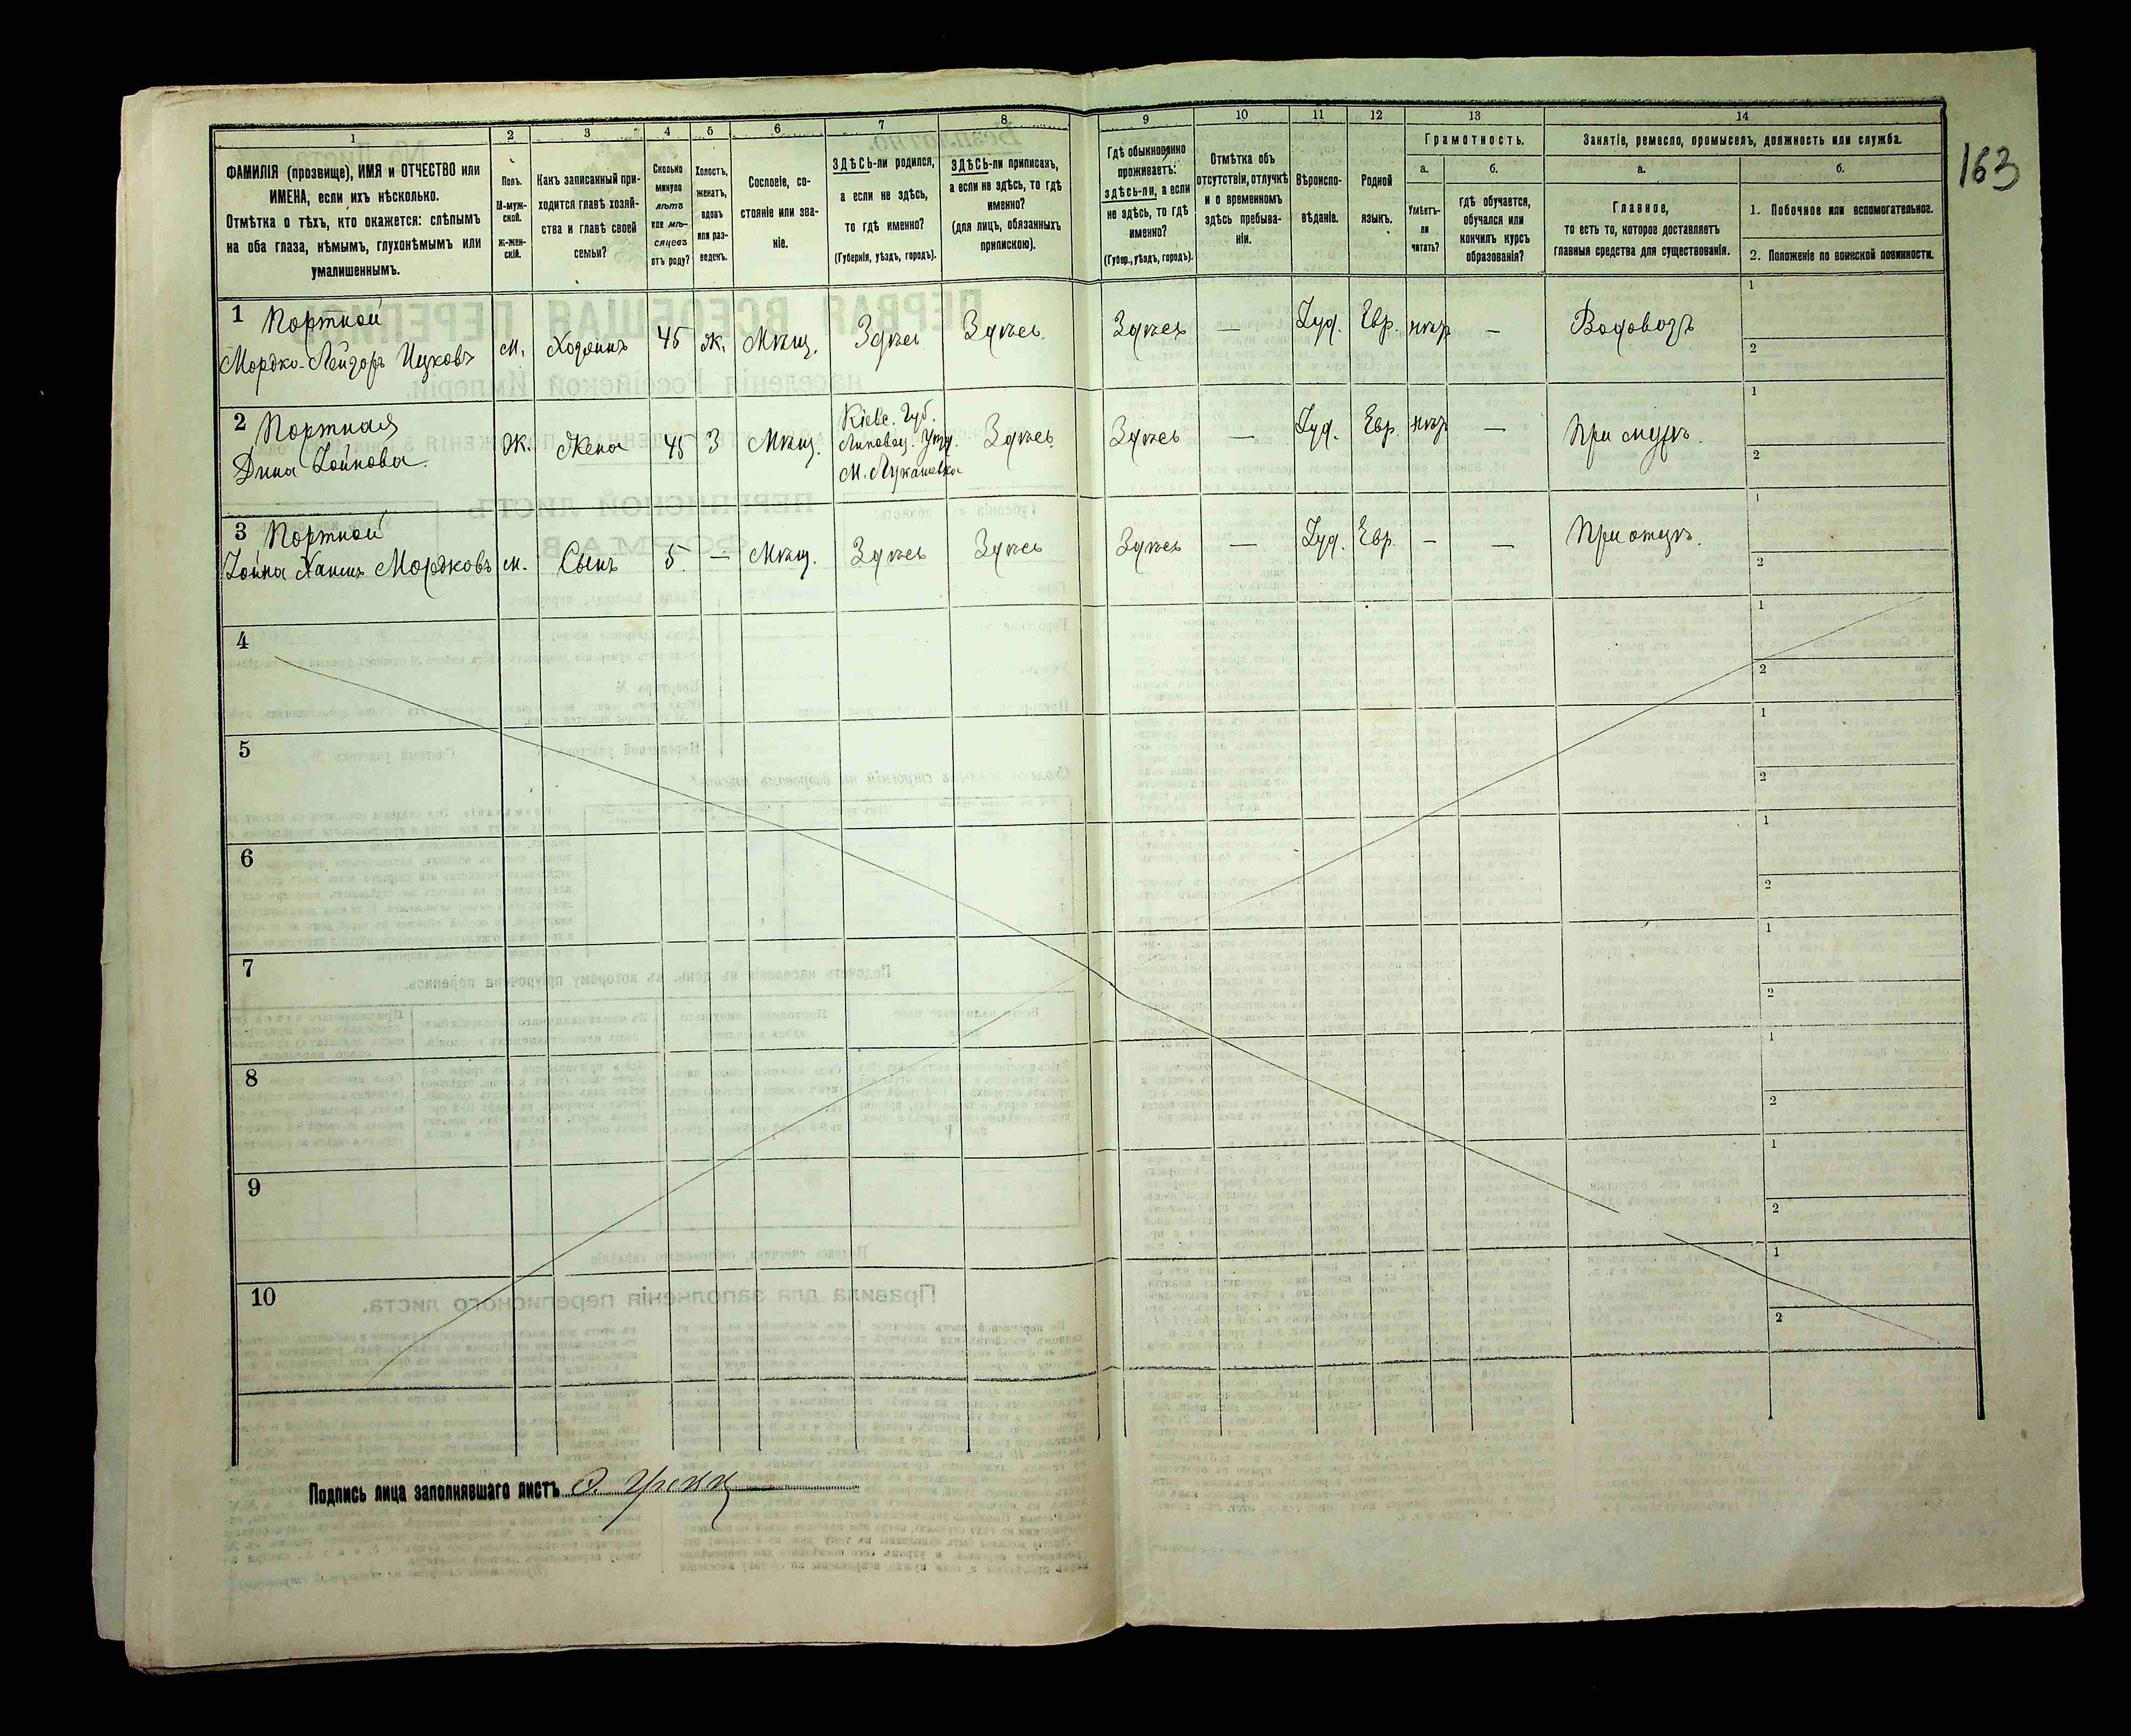 163
1 2 3 4 5 6 7 8 9 10 11 12 13 14
ФАМИЛІЯ (прозвище), ИМЯ и ОТЧЕСТВО или
ИМЕНА, если ихъ нѣсколько.
Отмѣтка о тѣхъ, кто окажется: слѣпымъ
на оба глаза, нѣмымъ, глухонѣмымъ или
умалишеннымъ.
Полъ.
М-муж-
ской.
Ж-жен-
скій.
Какъ записанный при-
ходится главѣ хозяй-
ства и главѣ своей
семьи?
Сколько
минуло
лѣтъ
или мѣ-
сяцевъ
отъ роду?
Холостъ,
женатъ,
вдовъ
или раз-
веденъ.
Сословіе, со-
стояніе или зва-
ніе.
ЗДѢСЬ-ли родился,
а если не здѣсь,
то гдѣ именно?
(Губернія, уѣздъ, городъ).
ЗДѢСЬ-ли приписанъ,
а если не здѣсь, то гдѣ
именно?
(для лицъ, обязанныхъ
припискою).
Гдѣ обыкновенно
проживаетъ:
здѣсь-ли, а если
не здѣсь, то гдѣ
именно?
(Губер., уѣздъ, городъ).
Отмѣтка объ
отсутствіи, отлучкѣ
и о временномъ
здѣсь пребыва-
ніи.
Вѣроиспо-
вѣданіе.
Родной
языкъ.
Грамотность.
а.
Умѣетъ-
ли
читать?
б.
гдѣ обучается,
обучался или
кончилъ курсъ
образованія?
Занятіе, ремесло, промыселъ, должность или служба.
а.
Главное,
то есть то, которое доставляетъ
главныя средства для существованія.
б.
1. Побочное или вспомогательное.
2. Положеніе по воинской повинности.
1 Портной
Мордко-Лейзоръ Ицковъ м. Хозяинъ 45 ж. Мѣщ. Здѣсь Здѣсь Здѣсь — Іуд. Евр. нѣтъ — Водовозъ
1
2
2 Портная
Дина Іойнова. Ж. Жена 45 З Мѣщ.
Кіевс. Губ.
Липовец. Уѣзд.
М. Лукашовка
Здѣсь Здѣсь — Іуд. Евр. нѣтъ — При мужѣ.
1
2
3 Портной
Іойна Хаимъ Мордковъ м. Сынъ 5. — Мѣщ. Здѣсь Здѣсь Здѣсь — Іуд. Евр. — — При отцѣ.
1
2
4
1
2
5
1
2
6
1
2
7
1
2
8
1
2
9
1
2
10
1
2
Подпись лица заполнявшаго листъ